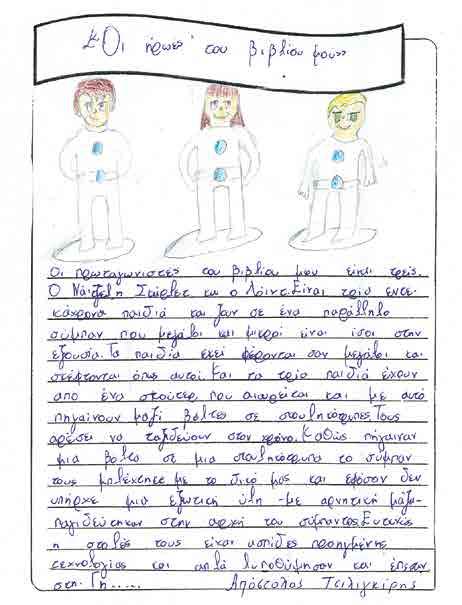 «Οι ήρωες του βιβλίου μου»
Οι πρωταγωνιστές του βιβλίου μου είναι τρεις.
Ο Νάιτζελ, η Σκάρλετ και ο Λόιντ. Είναι τρία εντε-
κάχρονα παιδιά και ζουν σε ένα παράλληλο
σύμπαν που μεγάλοι και μικροί είναι ίσοι στην
εξουσία. Τα παιδιά εκεί φέρονται σαν μεγάλοι και
σκέφτονται όπως αυτοί. Και τα τρία παιδιά έχουν
από ένα σκούτερ που αιωρείται και με αυτό
πηγαίνουν μαζί βόλτες σε σκουληκότρυπες. Τους
αρέσει να ταξιδεύουν στον χρόνο. Καθώς πήγαιναν
μια βόλτα σε μια σκουληκότρυπα το σύμπαν
τους με το δικό μας και εφόσον δεν
υπήρχε μια εξωτική ύλη -με αρνητική μάζα-
παγιδεύτηκαν στην αρχή του σύμπαντος. Ευτυχώς
η στολές τους είχαν ασπίδες προηγμένης
τεχνολογίας και απλά λιποθύμησαν και έπεσαν
στη Γη.....
Απόστολος Τσιλιγκίρης